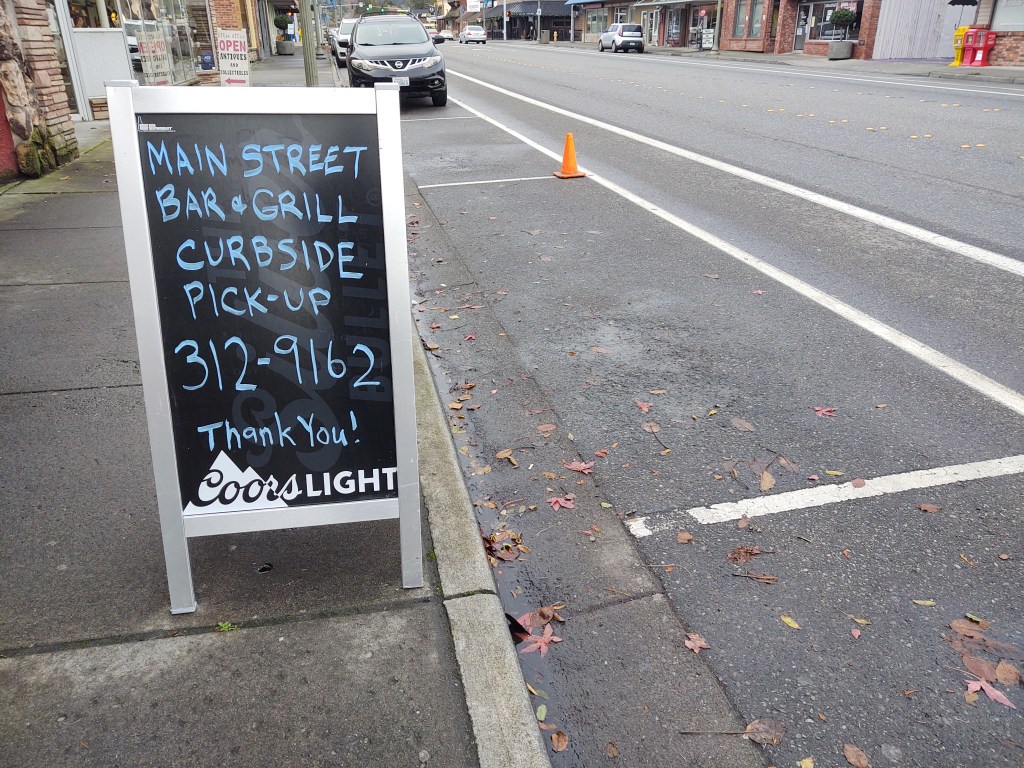 OPEN
ANTIQUES
AND
COLLECTIBLES
MAIN STREET
BAR & GRILL
CURBSIDE
PICK-UP
312-9162
Thank You!
Coors LIGHT